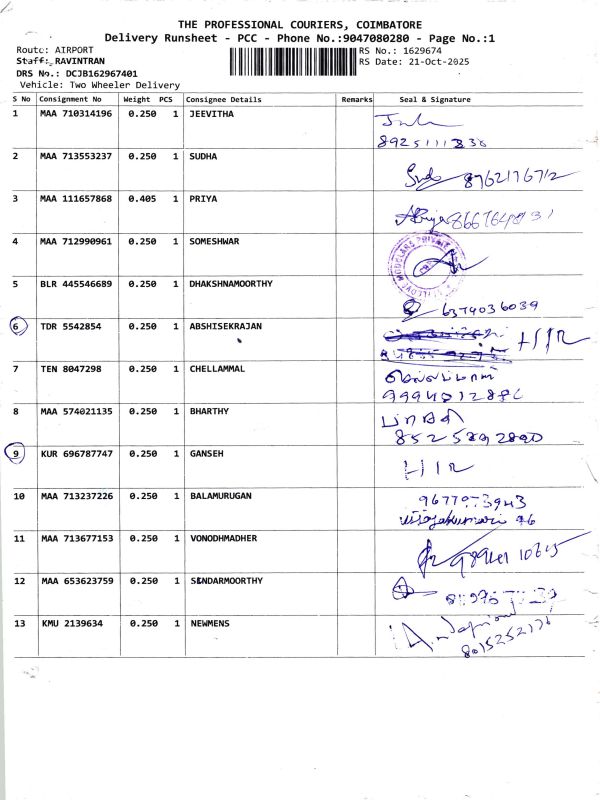 THE PROFESSIONAL COURIERS, COIMBATORE
Delivery Runsheet - PCC - Phone No.:9047080280 - Page No.:1
Route: AIRPORT RS No.: 1629674
Staff: RAVINTRAN RS Date: 21-Oct-2025
DRS No.: DCJB162967401
Vehicle: Two Wheeler Delivery
S No Consignment No Weight PCS Consignee Details Remarks Seal & Signature
1 MAA 710314196 0.250 1 JEEVITHA
2 MAA 713553237 0.250 1 SUDHA
8762176712
3 MAA 111657868 0.405 1 PRIYA
4 MAA 712990961 0.250 1 SOMESHWAR
5 BLR 445546689 0.250 1 DHAKSHNAMOORTHY
6374036039
6 TDR 5542854 0.250 1 ABSHISEKRAJAN
7 TEN 8047298 0.250 1 CHELLAMMAL
செல்லம்மாள்
8 MAA 574021135 0.250 1 BHARTHY
பாரதி
9 KUR 696787747 0.250 1 GANSEH
10 MAA 713237226 0.250 1 BALAMURUGAN
11 MAA 713677153 0.250 1 VONODHMADHER
12 MAA 653623759 0.250 1 SUNDARMOORTHY
13 KMU 2139634 0.250 1 NEWMENS
8015252176